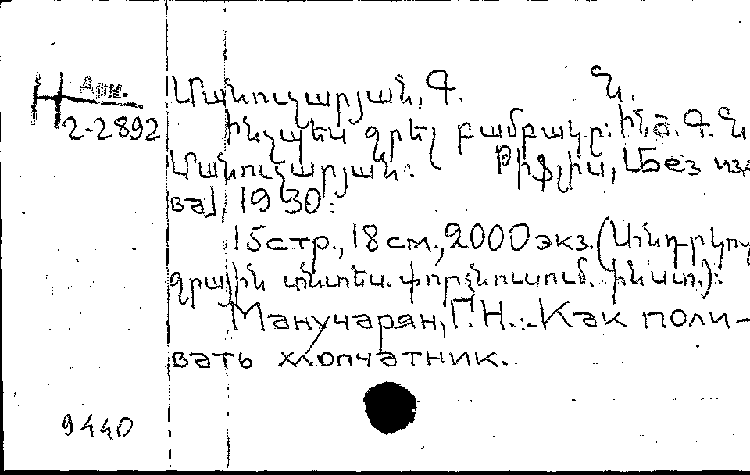 H Арм.
2-2892
Մանուչարյան, Գ. Ն.
Ինչպես ջրել բամբակը: Ինժ. Գ. Ն.
Մանուչարյան: Թիֆլիս, [Без из-
ва], 1930:
15 стр., 18 см., 2000 экз. (Անդրկով
ջրային տնտես. փորձնուսում. ինստ.):
Манучарян, Г. Н.: Как поли-
вать хлопчатник.
9440